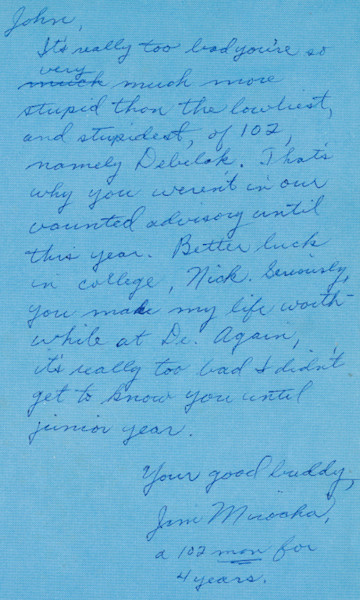 John,
It's really too bad you're so
very
much much more
stupid than the lowliest,
and stupidest, of 102,
namely Debilak. That's
why you weren't in our
vaunted advisory until
this year. Better luck
in college, Nick. Seriously,
you made my life worth-
while at De. Again,
it's really too bad I didn't
get to know you until
junior year.
Your good buddy,
Jim
a 102 man for
4 years.